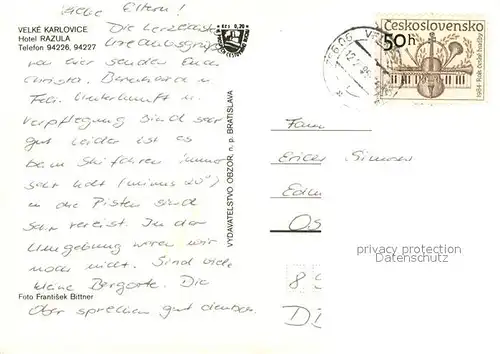 Liebe Eltern!
VELKÉ KARLOVICE
Hotel RAZULA
Telefon 94226, 94227
Die herzlichsten
Urlaubsgrüße
von hier senden Euch
Christa, Bernhard u.
Felix. Unterkunft u.
Verpflegung sind sehr
gut leider ist es
beim Skifahren immer
sehr kalt (minus 20°)
u. die Pisten sind
sehr vereist. In der
Umgebung waren wir
noch nicht. Sind viele
kleine Bergorte. Die
Ober sprechen gut deutsch.
Foto František Bittner
Kčs 0,70
VYDAVATEĽSTVO OBZOR, n. p. BRATISLAVA
Československo
50h
1984 - Rok české hudby
Fam
Erich Simon
Os
privacy protection
Datenschutz
8